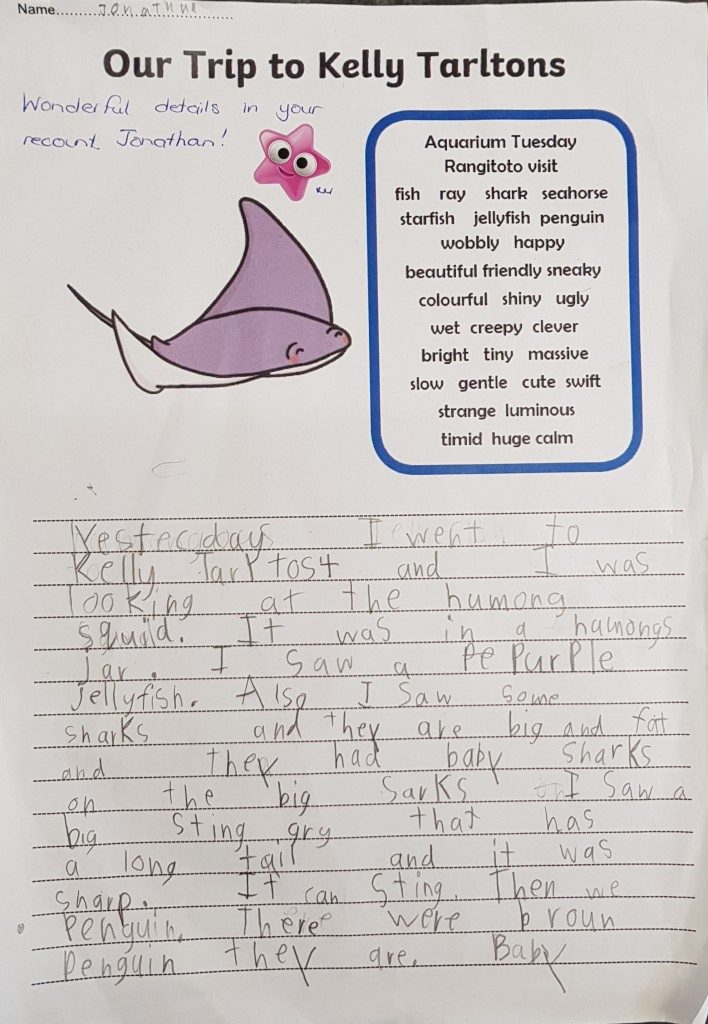 Name........Jonathan
Our Trip to Kelly Tarltons
Wonderful details in your
recount Jonathan!
Aquarium Tuesday
Rangitoto visit
fish ray shark seahorse
starfish jellyfish penguin
wobbly happy
beautiful friendly sneaky
colourful shiny ugly
wet creepy clever
bright tiny massive
slow gentle cute swift
strange luminous
timid huge calm
Yesterday I went to
Kelly Tarltost and I was
looking at the humong
squild. It was in a humongs
Jar. I saw a Pe Purple
jellyfish. Also I saw some
sharks and they are big and fat
and they had baby sharks
on the big sarks I saw a
big sting gry that has
a long tail and it was
sharp. It can Sting. Then we
penguin. There were broun
penguin they are. Baby